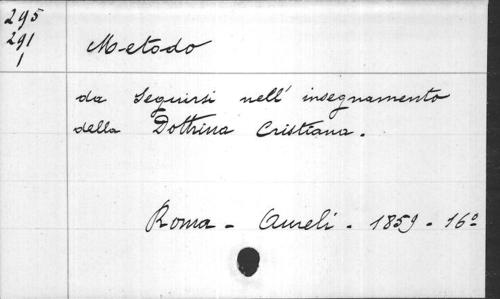 295
291
1
Metodo
da Seguirsi nell' insegnamento
della Dottrina Cristiana.
Roma - Aureli - 1859 - 16º